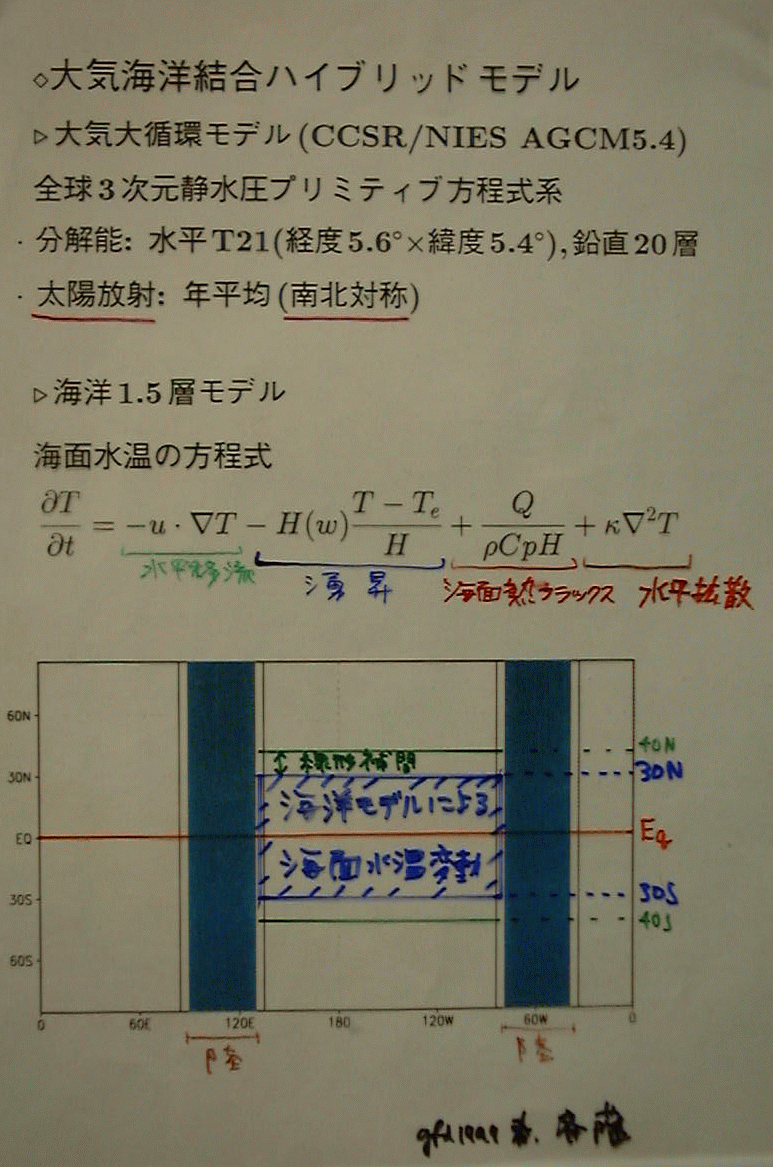 ◇大気海洋結合ハイブリッドモデル
▷大気大循環モデル(CCSR/NIES AGCM5.4)
全球3次元静水圧プリミティブ方程式系
・分解能: 水平T21(経度5.6°×緯度5.4°),鉛直20層
・太陽放射: 年平均(南北対称)
▷海洋1.5層モデル
海面水温の方程式
∂T/∂t = −u · ∇T − H(w) (T − Te)/H + Q/(ρCpH) + κ∇²T
水平移流 湧昇 海面熱フラックス 水平拡散
60N
40N
線形補間
30N 30N
海洋モデルによる
EQ Eq
海面水温変動
30S 30S
40S
60S
0 60E 120E 180 120W 60W 0
gfd1999